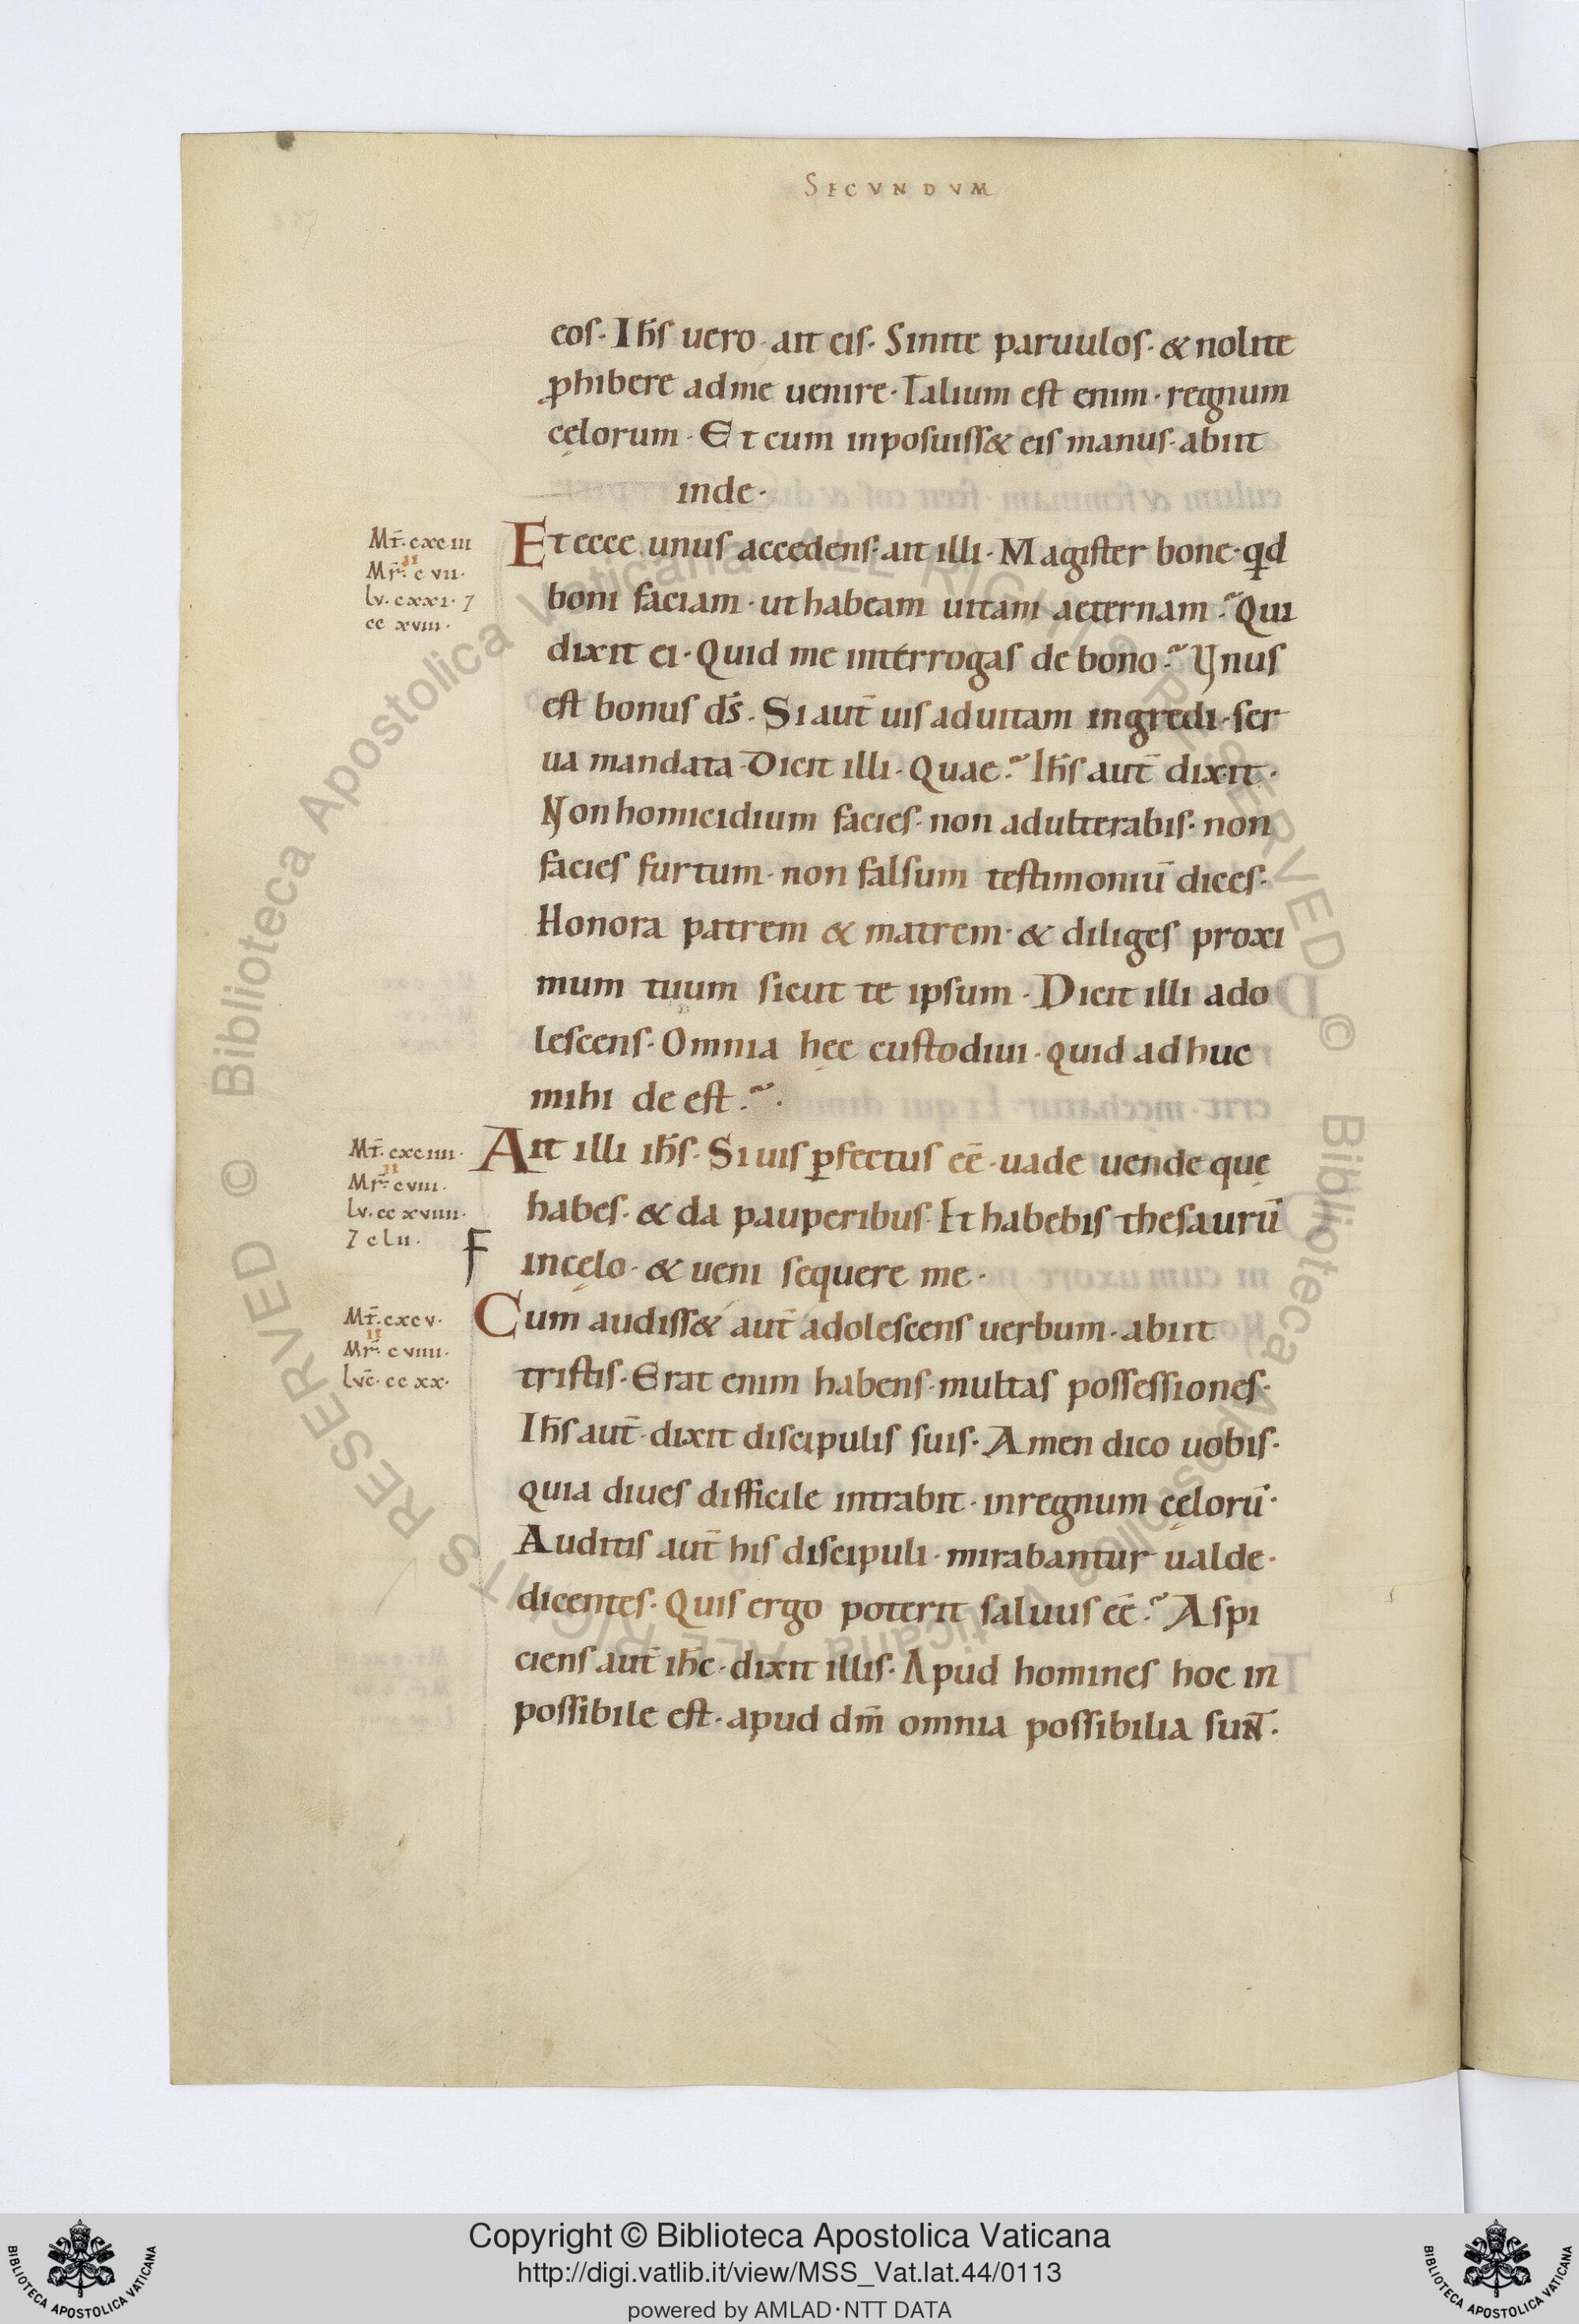 SECVNDVM
eos· Ih̅s uero· ait eis· Sinite paruulos· & nolite
ꝓhibere adme uenire· Talium est enim· regnum
cęlorum· Et cum inposuiss& eis manus· abiit
inde·
Mt̅· cxciii
Mr̅· ii c vii·
lv· cxxi· 7
cc xviii·
Et ecce unus accedens· ait illi· Magister bone· qd
boni faciam· ut habeam uitam aeternam? Qui
dixit ei· Quid me interrogas de bono? Vnus
est bonus ds̅· Si aut̅ uis aduitam ingredi· ser
ua mandata· Dicit illi· Quae? Ih̅s aut̅ dixit·
Non homicidium facies· non adulterabis· non
facies furtum· non falsum testimoniu̅ dices·
Honora patrem & matrem· & diliges proxi
mum tuum sicut te ipsum· Dicit illi ado
lescens· Omnia hęc custodiui· quid adhuc
mihi de est?·
Mt̅· cxciiii·
Mr̅· ii cviii·
lv· cc xviiii·
7 clii·
Ait illi ih̅s· Si uis ꝑfectus ee̅· uade uende quę
habes· & da pauperibus· Et habebis thesauru̅
F
incęlo· & ueni sequere me·
Mt̅· cxcv·
Mr̅· ii cviiii·
lvc̅· cc xx·
Cum audiss& aut̅ adolescens uerbum· abiit
tristis· Erat enim habens· multas possessiones·
Ih̅s aut̅· dixit discipulis suis· Amen dico uobis·
quia diues difficile intrabit· inregnum cęloru̅·
Auditis aut̅ his discipuli· mirabantur ualde·
dicentes· Quis ergo poterit saluus ee̅? Aspi
ciens aut̅ ih̅c· dixit illis· Apud homines hoc in
possibile est· apud dm̅ omnia possibilia sunt̅·
© Biblioteca Apostolica Vaticana ALL RIGHTS RESERVED
© Biblioteca Apostolica Vaticana ALL RIGHTS RESERVED
Copyright © Biblioteca Apostolica Vaticana
http://digi.vatlib.it/view/MSS_Vat.lat.44/0113
powered by AMLAD·NTT DATA
BIBLIOTECA APOSTOLICA VATICANA
BIBLIOTECA APOSTOLICA VATICANA